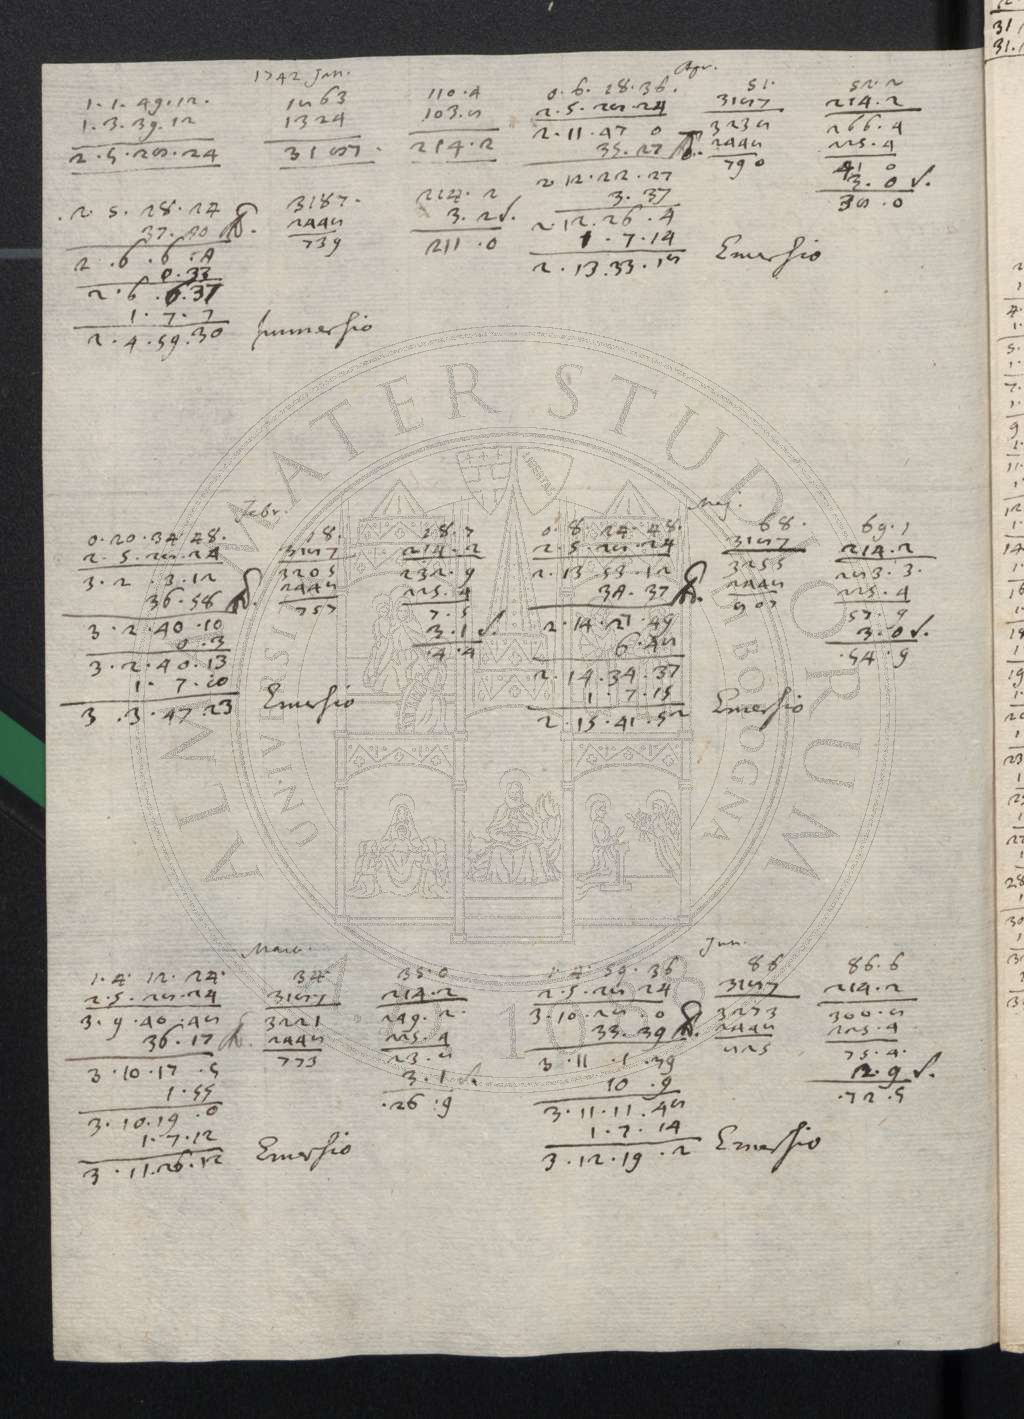 1742 Jan.
1. 1. 49. 12.
1. 3. 39. 12
2 · 5 · 28 · 24
1863
1324
3187.
110.4
103.8
214.2
2 5 . 28 . 24
37. 40
2 . 6 . 6 . 4
0.33
2 . 6 . 6.37
1 . 7 . 7
2 . 4 . 59.30 Immersio
3187.
2448
739
214. 2
3. 2
211.0
Apr.
0. 6. 18. 36.
2. 5. 28. 24
2. 11. 47 0
35. 27
2 12. 22. 27
3. 37
2. 12. 26. 4
1. 7. 14
2. 13. 33. 18 Emersio
51.
3187
3238
2448
790
52. 2
214. 2
266. 4
225. 4
41 0
3. 0
38. 0
Febr.
0. 20. 34 48.
2. 5. 28. 24
3. 2 . 3. 12
36. 58
3. 2. 40. 10
0. 3
3. 2. 40. 13
1. 7. 10
3 . 3. 47. 23 Emersio
18.
3187
3205
2448
757
18. 7
214. 2
232. 9
225. 4
7. 5
3. 1
. 4. 4
Maj.
0. 8. 24. 48.
2. 5. 28. 24
2. 13. 53. 12
34. 37
2. 14. 27. 49
6. 48
2. 14. 34. 37
1. 7. 15
2. 15. 41. 52 Emersio
68.
3187
3255
2448
807
69. 1
214. 2
283. 3.
225. 4
57. 9
3. 0
. 54. 9
1. 4. 12. 24.
2. 5. 28. 24
3. 9. 40. 48
36. 17
3. 10. 17 . 5
1. 55
3. 10. 19. 0
1. 7. 12
3. 11. 26. 12 Emersio
34.
3187
3221
2448
773
35. 0
214. 2
249. 2.
225. 4
23. 8
3. 1
. 26. 9
Jun.
1. 4. 59. 36
2. 5. 28 24
3. 10. 28. 0
33. 39
3. 11 . 1. 39
10 . 9
3. 11. 11. 48
1. 7. 14
3. 12. 19. 2 Emersio
86
3187
3273
2448
825
86. 6
214. 2
300. 8
225. 4
75. 4.
2. 9
. 72. 5
ALMA MATER STUDIORUM